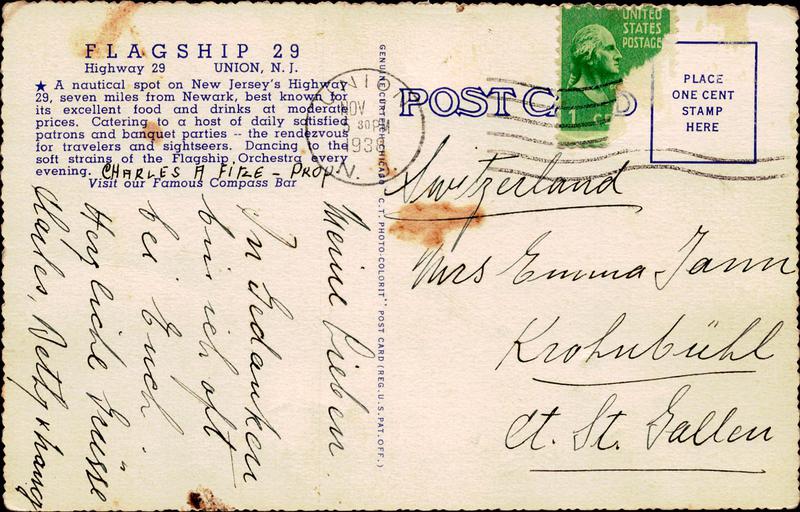 FLAGSHIP 29
Highway 29 UNION, N. J.
★ A nautical spot on New Jersey's Highway
29, seven miles from Newark, best known for
its excellent food and drinks at moderate
prices. Catering to a host of daily satisfied
patrons and banquet parties -- the rendezvous
for travelers and sightseers. Dancing to the
soft strains of the Flagship Orchestra every
evening. CHARLES A FITZE - PROP.
Visit our Famous Compass Bar
Meine Lieben.
In Gedanken
bin ich oft
bei Euch.
Herzliche Grüsse
Charles, Betty &
GENUINE CURTEICH-CHICAGO "C.T. PHOTO-COLORIT" POST CARD (REG. U.S. PAT. OFF.)
NOV
30 PM
193
N.
POST CARD
UNITED
STATES
POSTAGE
1
PLACE
ONE CENT
STAMP
HERE
Switzerland
Mrs Emma Jann
Krohnbühl
Ct. St. Gallen